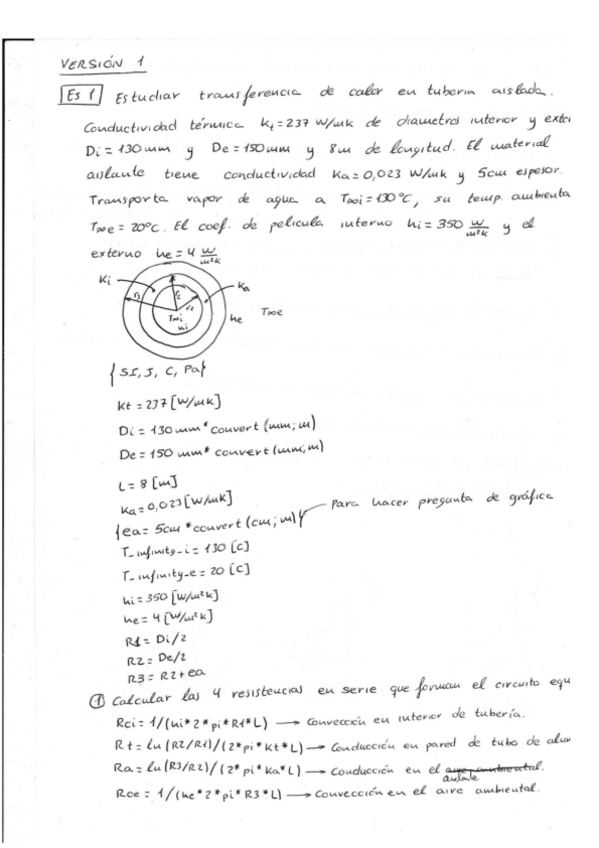 VERSIÓN 1
Es 1 Estudiar transferencia de calor en tuberia aislada.
Conductividad térmica Kt=237 W/mk de diametros interior y exteri
Di = 130mm y De = 150mm y 8m de longitud. El material
aislante tiene conductividad Ka=0,023 W/mk y 5cm espesor.
Transporta vapor de agua a T∞i=130ºC, su temp. ambienta
T∞e = 20ºC. El coef. de pelicula interno hi=350 W/m²k y el
externo he=4 W/m²k
Ki
Ka
r3
r2
r1
T∞i
hi
he
T∞e
{SI, J, C, Pa}
Kt = 237 [W/mk]
Di = 130 mm * convert (mm; m)
De = 150 mm * convert (mm; m)
L = 8 [m]
Ka = 0,023 [W/mk]
{ea = 5cm * convert (cm; m)} Para hacer pregunta de gráfica
T_infinity_i = 130 [C]
T_infinity_e = 20 [C]
hi = 350 [W/m²k]
he = 4 [W/m²k]
R1 = Di/2
R2 = De/2
R3 = R2 + ea
① Calcular las 4 resistencias en serie que forman el circuito equ
Rci = 1/(hi*2*pi*R1*L) → Convección en interior de tubería.
Rt = ln(R2/R1)/(2*pi*Kt*L) → Conducción en pared de tubo de alum
Ra = ln(R3/R2)/(2*pi*Ka*L) → Conducción en el aire ambiental. aislante
Rce = 1/(he*2*pi*R3*L) → Convección en el aire ambiental.